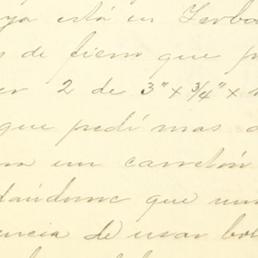 ya está en
s de fierro que p
er 2 de 3" x 3/4" x
que pedí mas
un carretón
dándome que
encia de usar